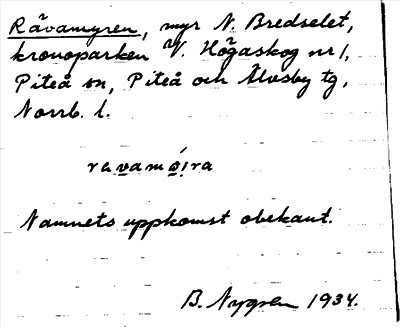 Rävamyren, myr N. Bredselet,
kronoparken V. Högaskog nr 1,
Piteå sn, Piteå och Älvsby tg,
Norrb. l.
Namnets uppkomst obekant.
B. Nygren 1934.